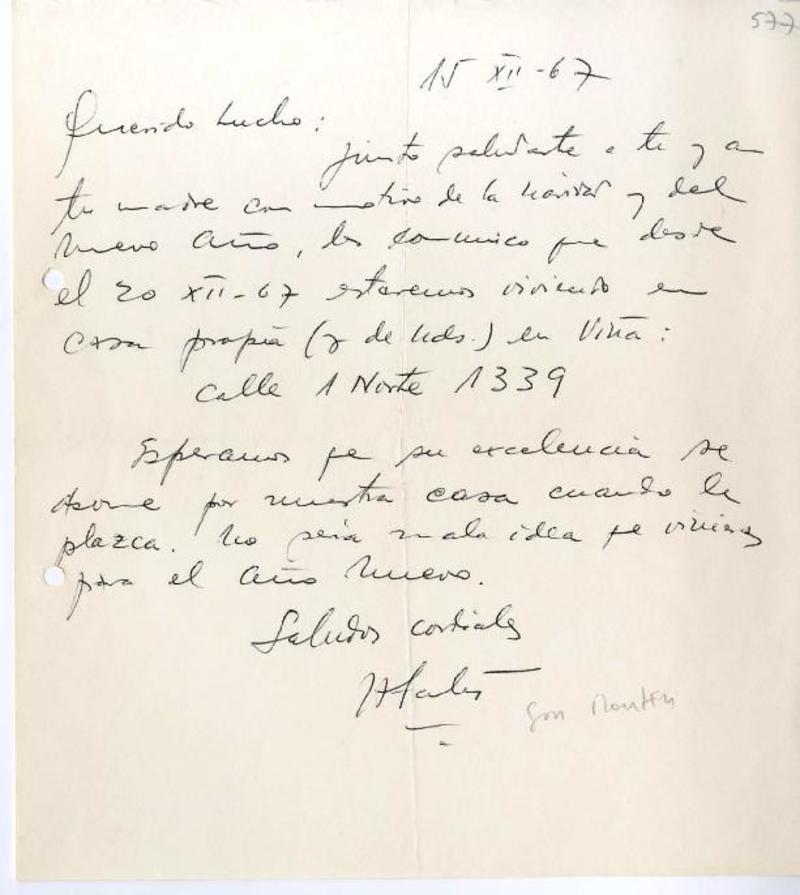 577
15 XII-67
Querido Lucho:
Junto saludarte a ti y a
tu madre con motivo de la Navidad y del
Nuevo Año, les comunico que desde
el 20 XII-67 estaremos viviendo en
casa propia (y de Uds.) en Viña:
Calle 1 Norte 1339
Esperamos qe su excelencia se
asome por nuestra casa cuando le
plazca. No sería mala idea qe vinieras
para el Año Nuevo.
Saludos cordiales